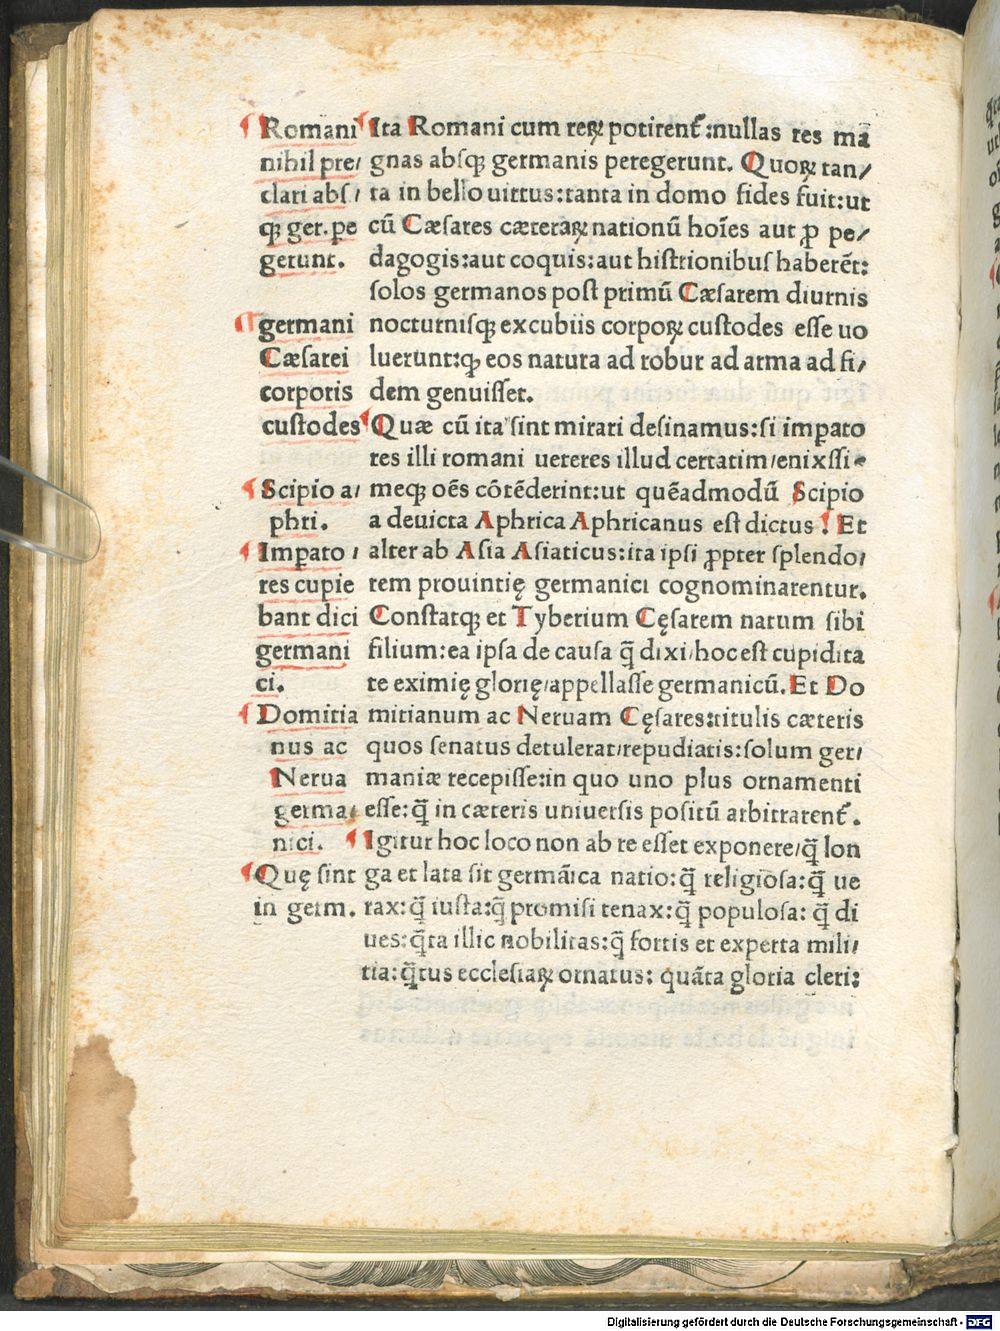 ¶ Romani
nihil pre/
clari abs/
qꝫ ger. pe
gerunt.
¶ germani
Cæsarei
corporis
custodes
¶ Scipio a/
phri.
¶ Impato/
res cupie
bant dici
germani
ci.
¶ Domitia
nus ac
Nerua
germa/
nici.
¶ Quę sint
in germ.
¶ Ita Romani cum reꝝ potirent᷑:nullas res mā
gnas absqꝫ germanis peregerunt. Quoꝝ tan/
ta in bello uirtus:tanta in domo fides fuit:ut
cū Cæsares cæteraꝝ nationū hoīes aut ꝓ pe/
dagogis:aut coquis:aut histrionibus haberēt:
solos germanos post primū Cæsarem diurnis
nocturnisqꝫ excubiis corpoꝝ custodes esse uo
luerunt:qꝫ eos natura ad robur ad arma ad fi/
dem genuisset.
¶ Quæ cū ita sint mirari desinamus:si impato
res illi romani ueteres illud certatim/enixssi-
meqꝫ oēs cōtēderint:ut quēadmodū Scipio
a deuicta Aphrica Aphricanus est dictus! Et
alter ab Asia Asiaticus:ita ipsi ꝓpter splendo/
rem prouintię germanici cognominarentur.
Constatqꝫ et Tyberium Cęsarem natum sibi
filium:ea ipsa de causa q̄ dixi/hoc est cupidita
te eximię glorię/appellasse germanicū. Et Do
mitianum ac Neruam Cęsares:titulis cæteris
quos senatus detulerat/repudiatis:solum ger/
maniæ recepisse:in quo uno plus ornamenti
esse:q̄ in cæteris uniuersis positū arbitrarent᷑.
¶ Igitur hoc loco non ab re esset exponere/q̄ lon
ga et lata sit germāica natio:q̄ religiosa:q̄ ue
rax:q̄ iusta:q̄ promisi tenax:q̄ populosa: q̄ di
ues:q̄ta illic nobilitas:q̄ fortis et experta mili/
tia:q̄tus ecclesiaꝝ ornatus: quāta gloria cleri:
Digitalisierung gefördert durch die Deutsche Forschungsgemeinschaft - DFG